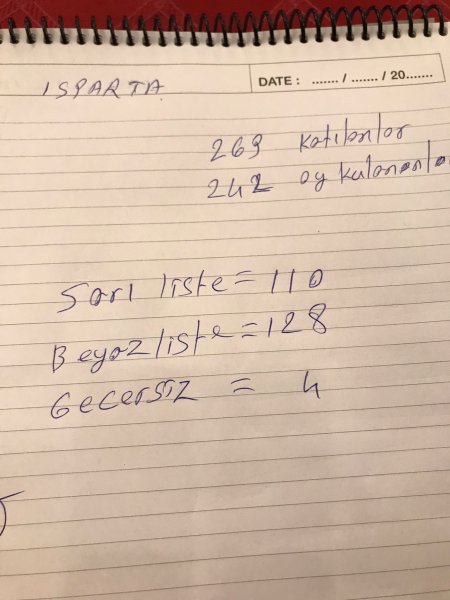 ISPARTA
DATE : ....... / ....... / 20.......
269 katılanlar
242 oy kulananla
Sarı liste = 110
Beyaz liste = 128
Gecersiz = 4